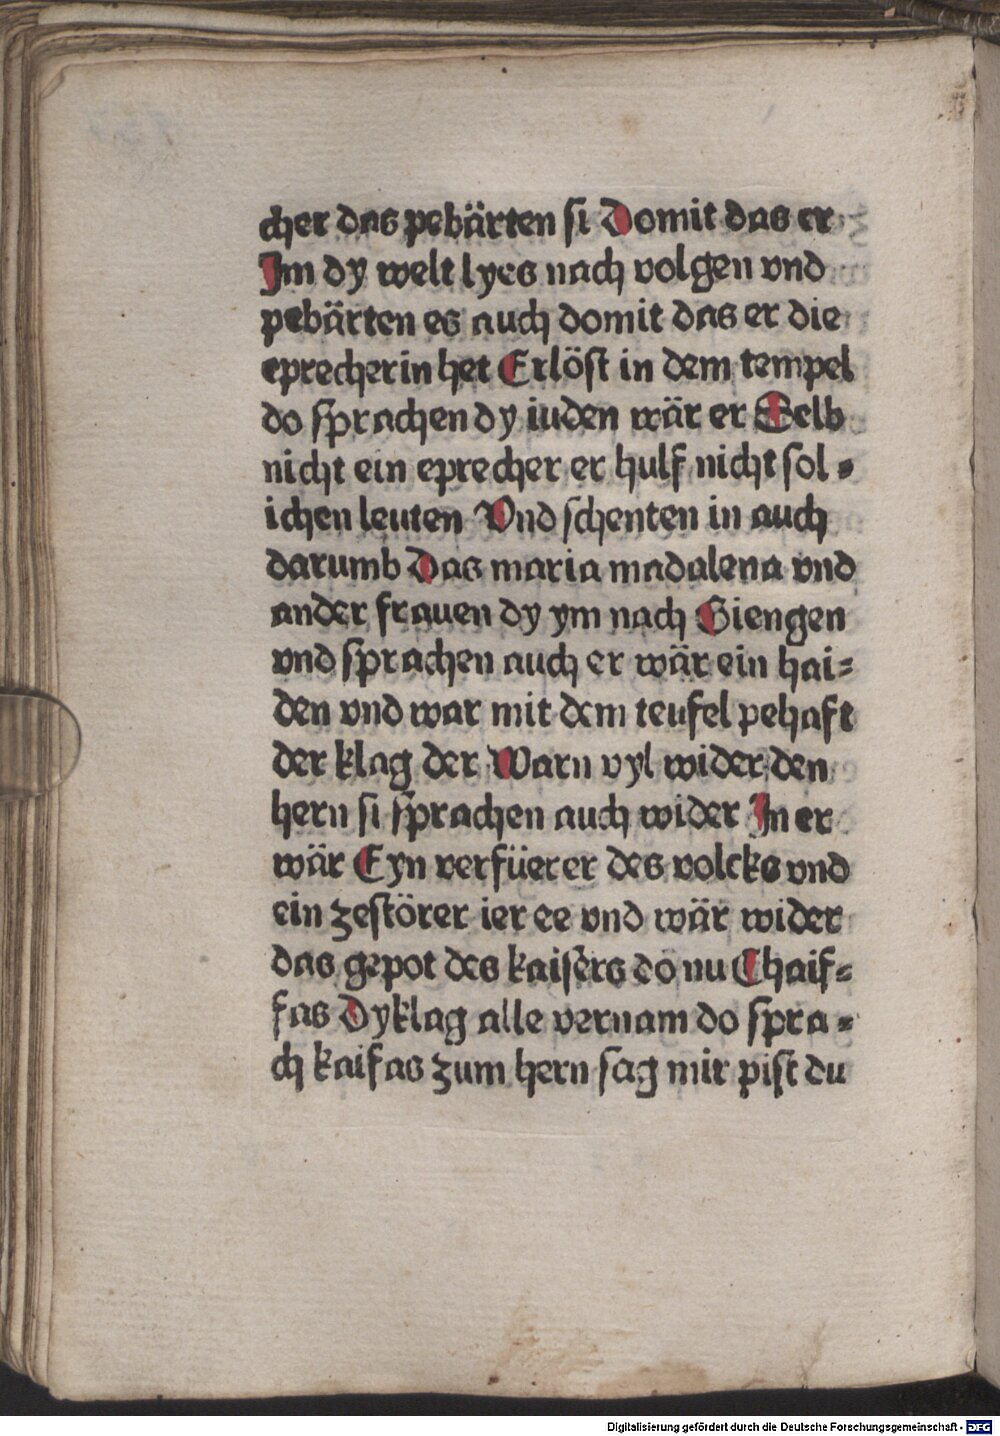 cher das pebärten si Domit das er
Im dy welt lyes nach volgen vnd
pebärten es auch domit das er die
eprecherin het Erlöst in dem tempel
do sprachen dy iuden wär er Selb
nicht ein eprecher er hulf nicht sol-
ichen leuten Vnd schenten in auch
darumb Das maria madalena vnd
ander frauen dy ym nach Giengen
vnd sprachen auch er wär ein hai=
den vnd war mit dem teufel pehaft
der klag der Warn vyl wider den
hern si sprachen auch wider In er
wär Eyn verfüerer des volcks vnd
ein zestörer ier ee vnd wär wider
das gepot des kaisers do nu Chaif=
fas Dyklag alle vernam do spra-
ch kaifas zum hern sag mir pist du
Digitalisierung gefördert durch die Deutsche Forschungsgemeinschaft - DFG